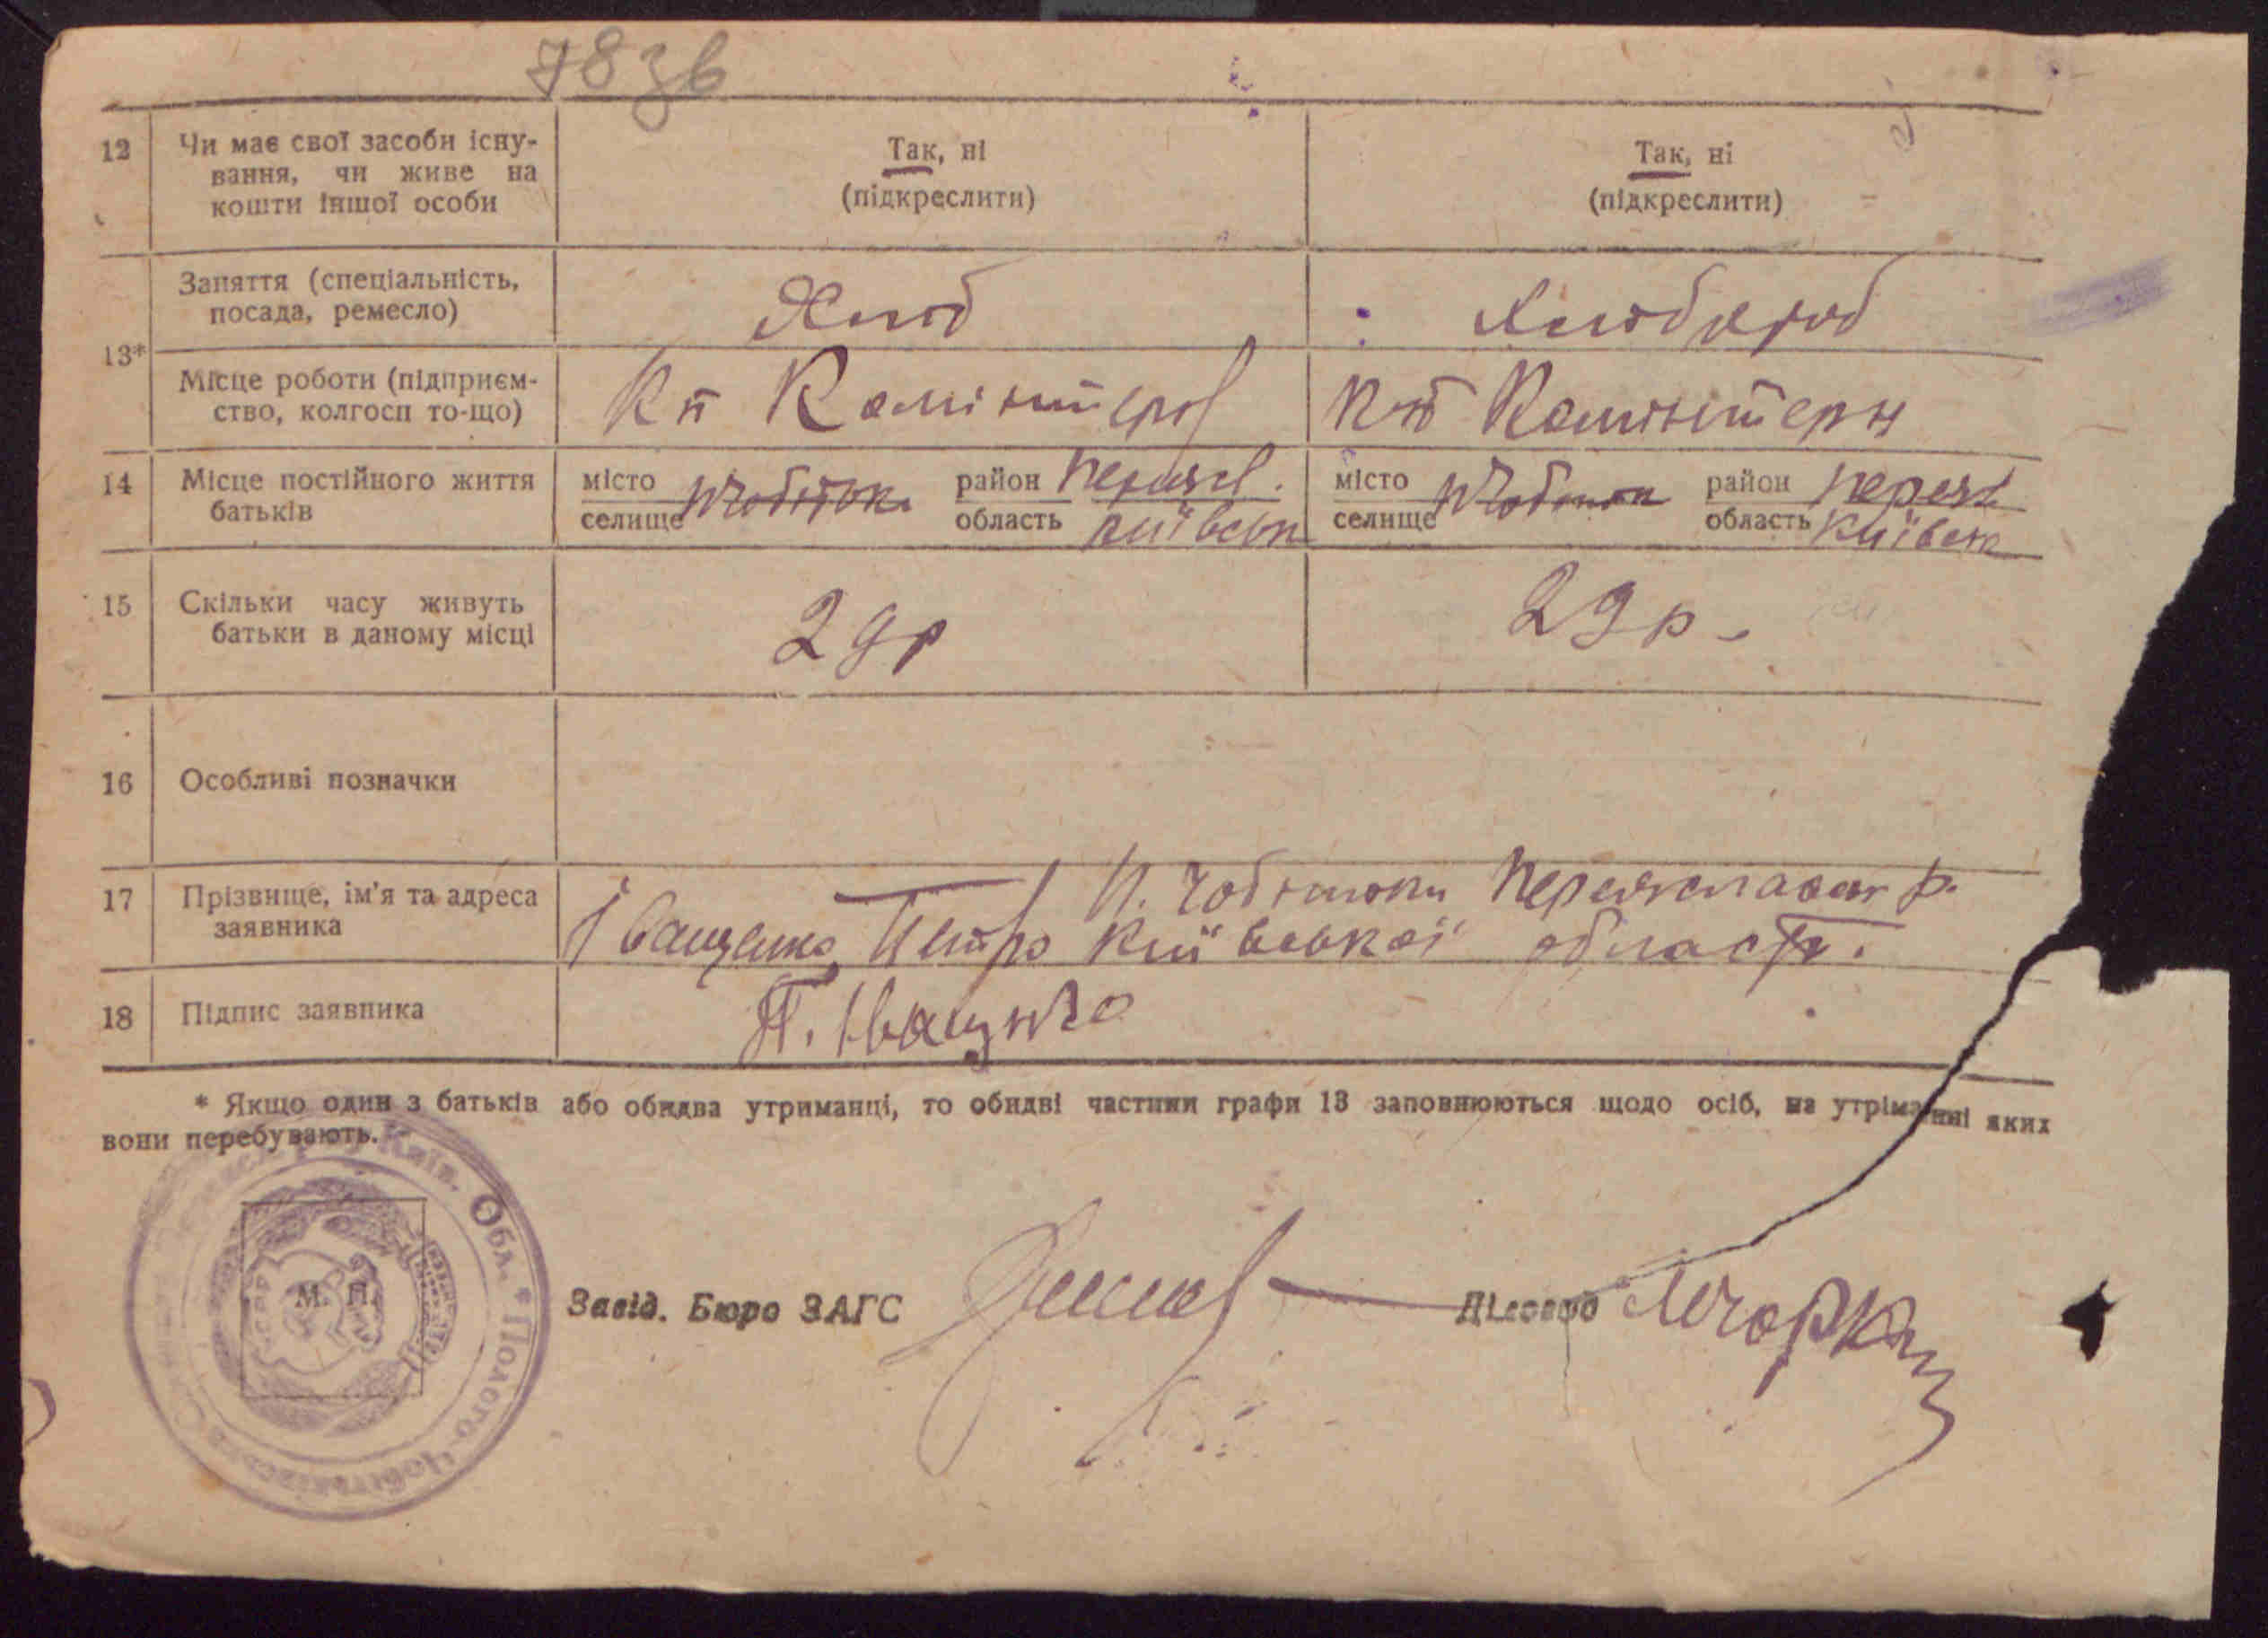 78зв
12 Чи має свої засоби існу- Так, ні Так, ні
вання, чи живе на
кошти іншої особи (підкреслити) (підкреслити)
Заняття (спеціальність, Хліб Хлібороб
посада, ремесло)
13*
Місце роботи (підприєм- Комінтерн
ство, колгосп то-що)
14 Місце постійного життя місто район місто район
батьків селище область Київськ селище область Київськ
15 Скільки часу живуть 29р 29р.
батьки в даному місці
16 Особливі позначки
17 Прізвище, ім'я та адреса П. Чобітьки Переяславськ р.
заявника Іващенко Петро Київської област.
18 Підпис заявника П. Іващенко
* Якщо один з батьків або обидва утриманці, то обидві частини графи 13 заповнюються щодо осіб, на утріманні яких
вони перебувають.
Київ. Обл. * Пологo-Чобітьківська
М. П.
Завід. Бюро ЗАГС Діловод